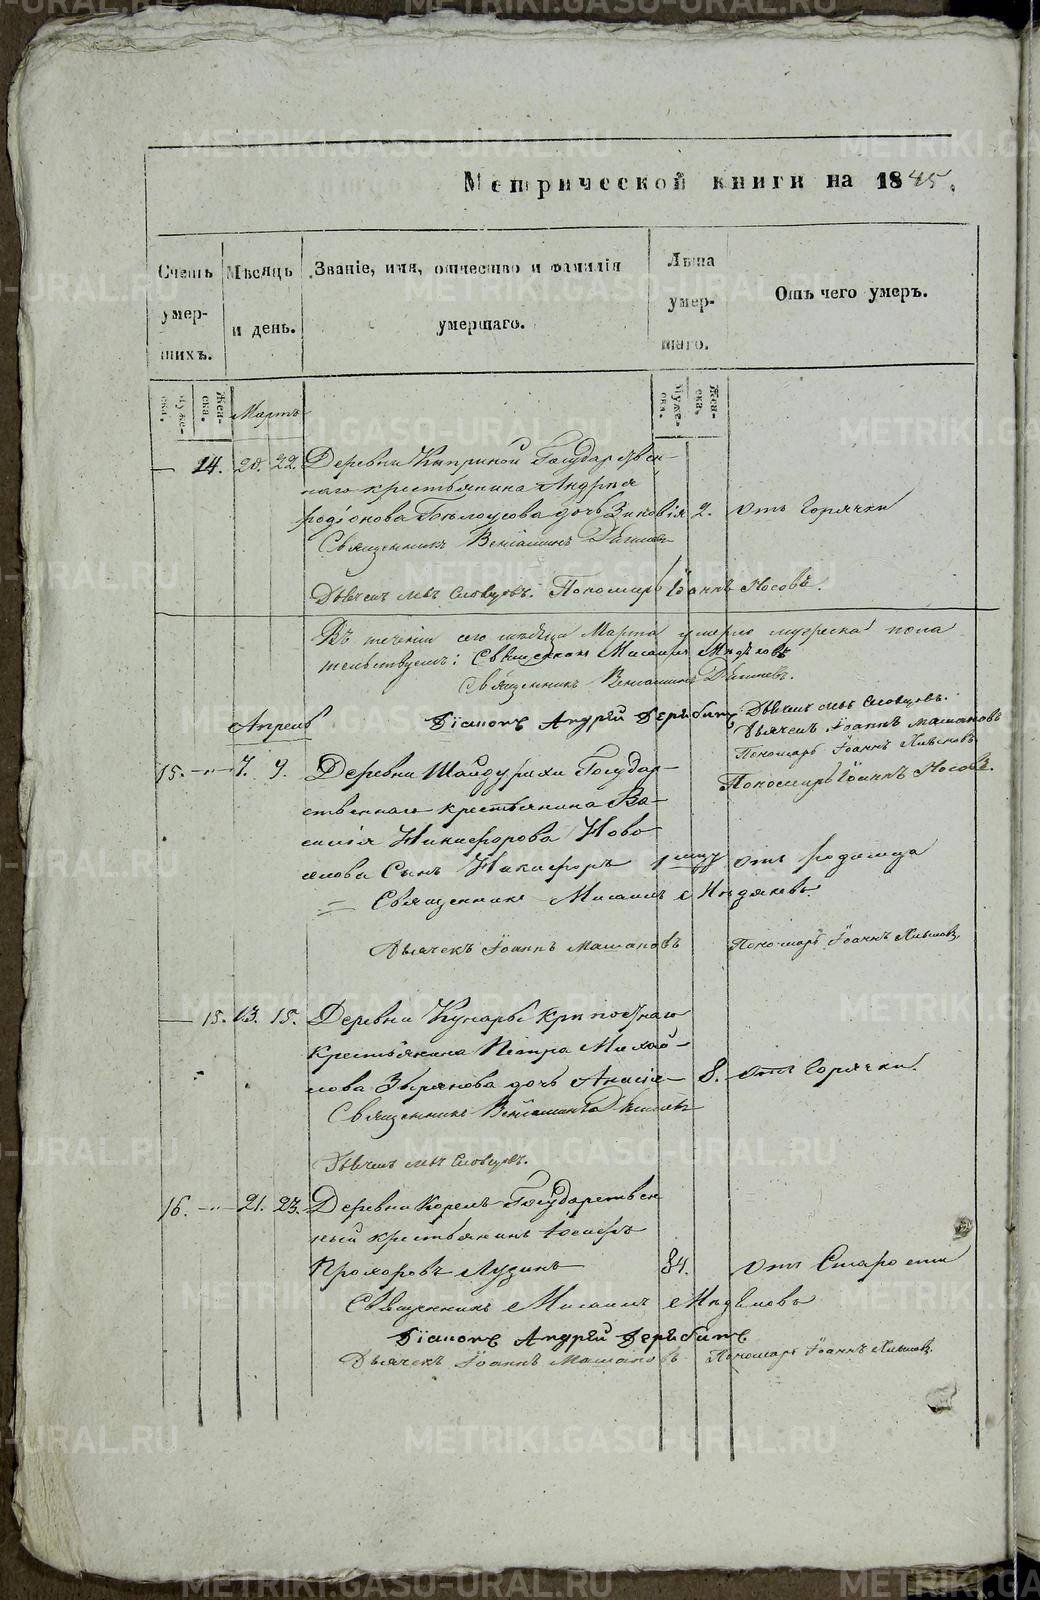 Метрической книги на 1845.
Счетъ умер-шихъ.
Мѣсяцъ и день.
Званіе, имя, отчество и фамилія умершаго.
Лѣта умер-шаго.
Отъ чего умеръ.
Муже-ска.
Жен-ска.
Муже-ска.
Жен-ска.
Мартъ
— 14. 20. 22. Деревни Киприной Государствен-
наго крестьянина Андрея
Родіонова Бѣлоусова дочь Зиновія 2. Отъ Горячки
Священникъ Веніаминъ
Дьячекъ Левъ Словцовъ. Пономарь Іоаннъ Носовъ.
Въ теченіи сего мѣсяца Марта умерло мужеска пола
Священникъ Мисаилъ
Священникъ Веніаминъ
Діаконъ Андрей Дерябинъ Дьячекъ Левъ Словцовъ.
Дьячекъ Іоаннъ Машановъ
Пономарь Іоаннъ
Пономарь Іоаннъ Носовъ.
Апрель
15. — 7. 9. Деревни Шайдурихи Государ-
ственнаго крестьянина Ва-
силія Никифорова Ново-
сынъ Никифоръ отъ родимца
Священникъ Мисаилъ
Дьячекъ Іоаннъ Машановъ Пономарь Іоаннъ
— 15. 13. 15. Деревни Кунарь Крѣпостнаго
Крестьянина Петра Михай-
лова Зырянова дочь 8. отъ Горячки.
Священникъ Веніаминъ
Дьячекъ Левъ Словцовъ.
16. — 21. 23. Деревни Корелъ Государствен
ный крестьянинъ Іосифъ
Прохоровъ Лузинъ 84. отъ Старости
Священникъ Мисаилъ
Діаконъ Андрей Дерябинъ
Дьячекъ Іоаннъ Машановъ Пономарь Іоаннъ
METRIKI.GASO-URAL.RU